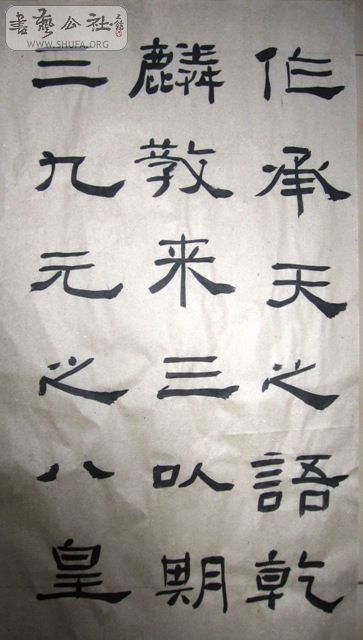 書藝公社
WWW.SHUFA.ORG
作承天之語乾
麟敎来三以期
二九元之八皇